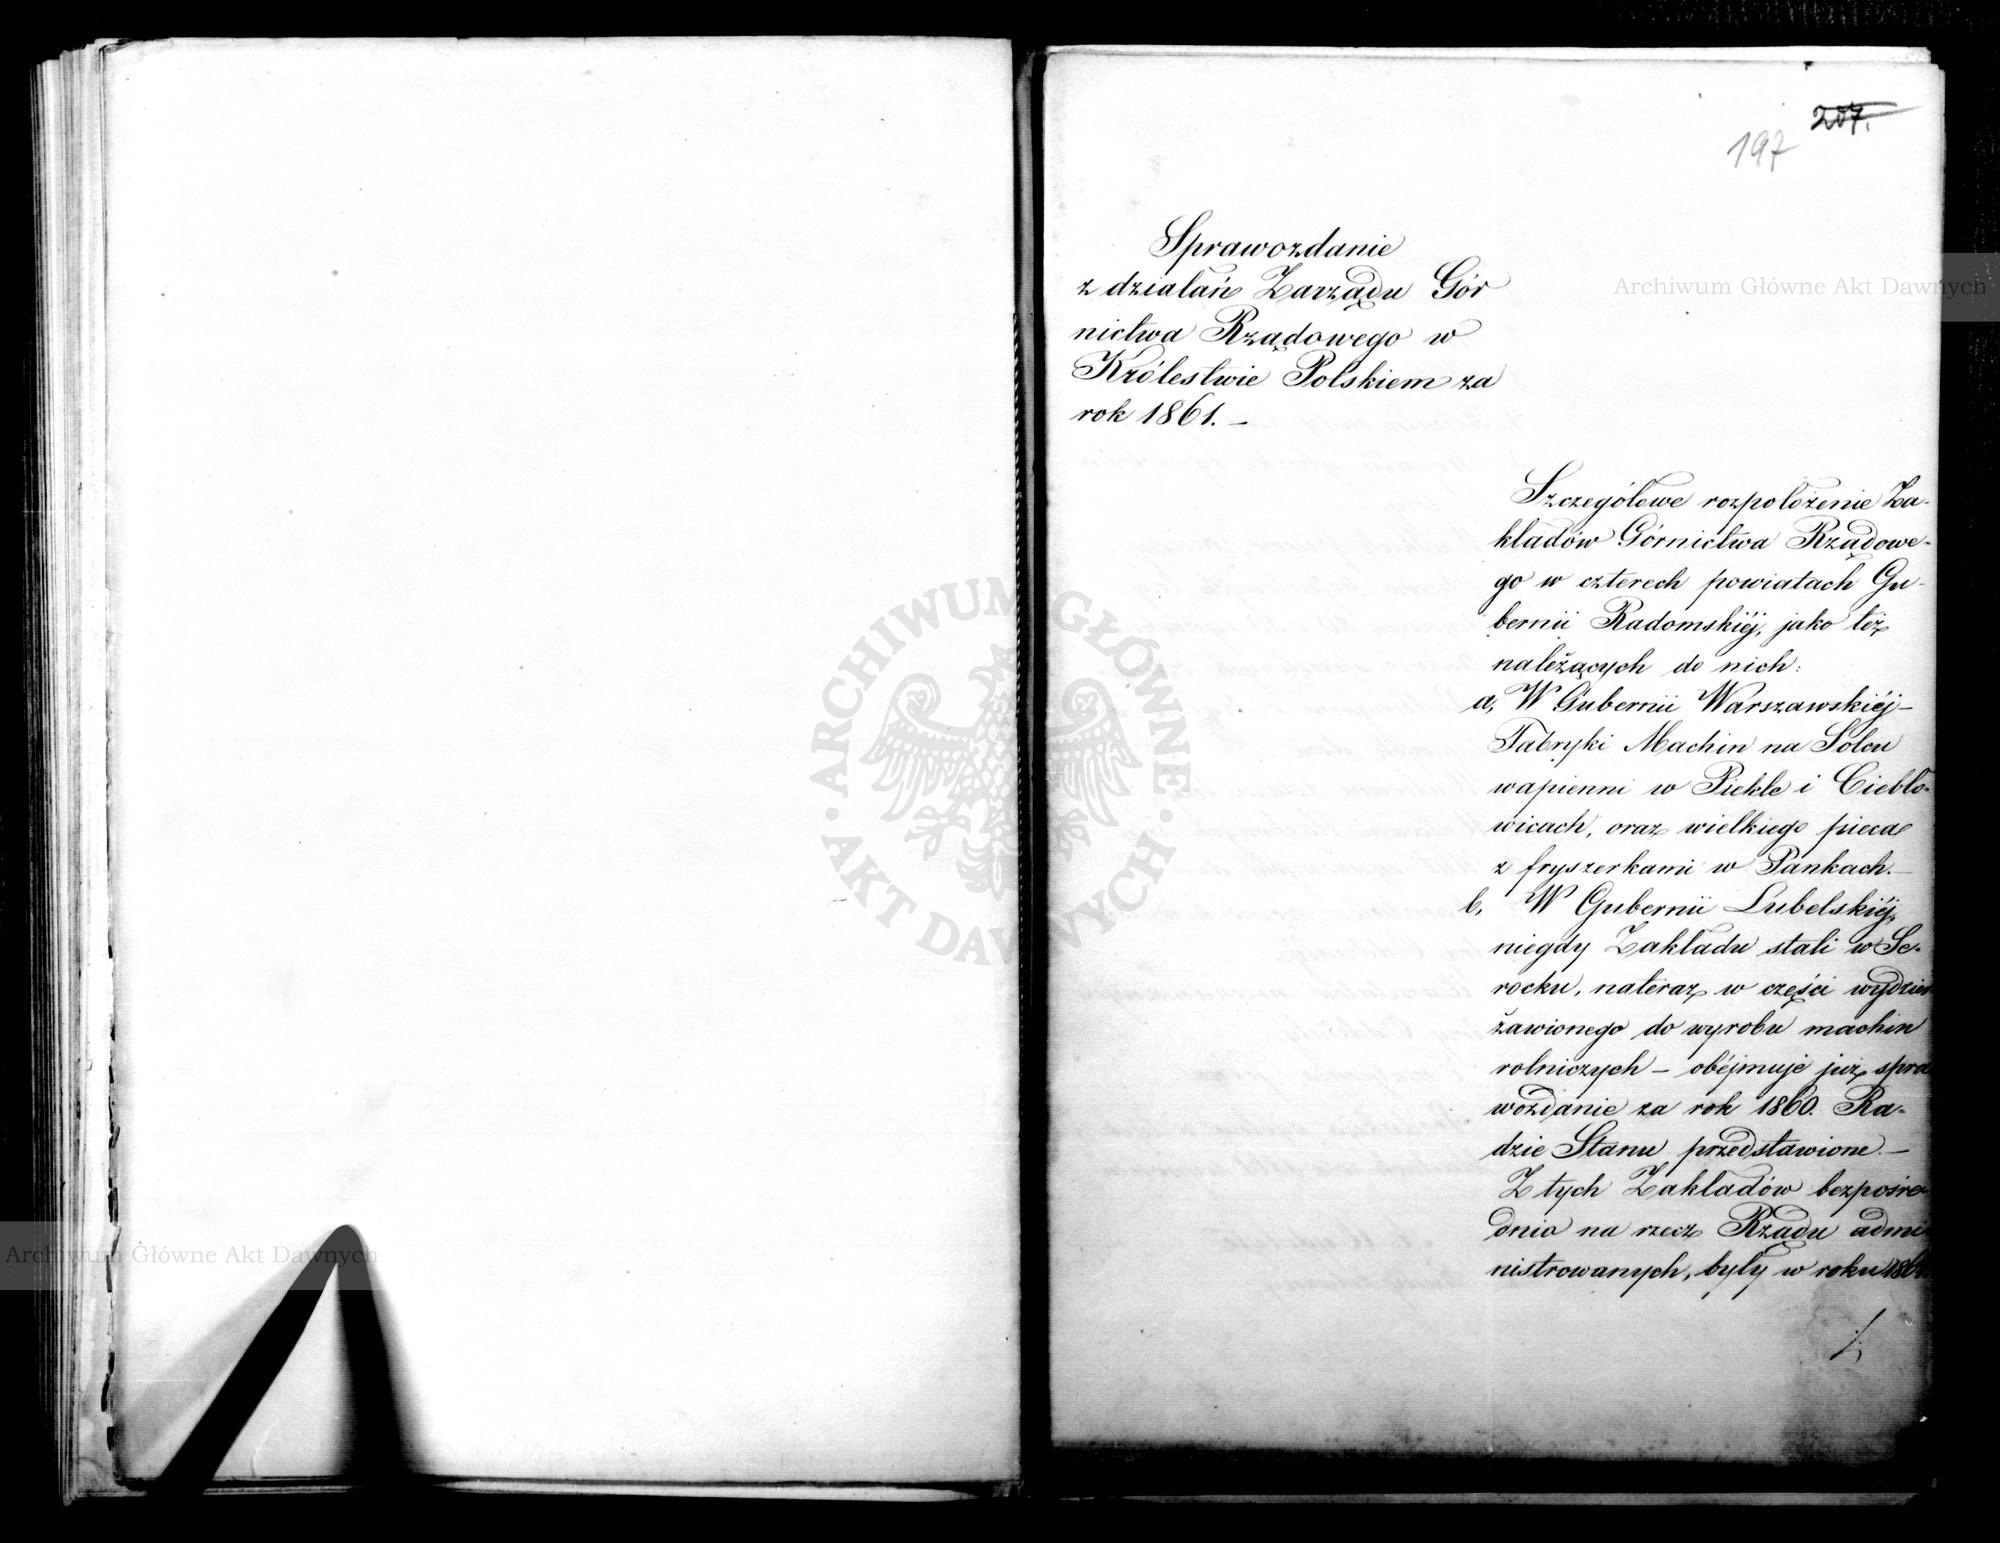 207.
197
Sprawozdanie
z działań Zarządu Gór
nictwa Rządowego w
Królestwie Polskiem za
rok 1861. –
Szczegółowe rozpołożenie Za-
kładów Górnictwa Rządowe-
go w czterech powiatach Gu-
bernii Radomskiéj, jako też
należących do nich:
a, W Gubernii Warszawskiéj –
Fabryki Machin na Solcu
wapienni w Piekle i Ciebło-
wicach, oraz wielkiego pieca
z fryszerkami w Pankach. –
b, W Gubernii Lubelskiéj,
niegdy Zakładu stali w Se-
rocku, nateraz w części wydzier
żawionego do wyrobu machin
rolniczych – obéjmuje już spra
wozdanie za rok 1860. Ra-
dzie Stanu przedstawione. –
Z tych Zakładów bezpośre-
dnio na rzecz Rządu admi
nistrowanych, były w roku 1861
Archiwum Główne Akt Dawnych
Archiwum Główne Akt Dawnych
ARCHIWUM GŁÓWNE • AKT DAWNYCH •